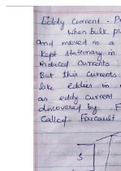 Eddy Current - P
When bulk p
and moved in a
Kept stationary in
induced currents
But this currents
like eddies in
as an eddy current
discovered by F
Called Foucault